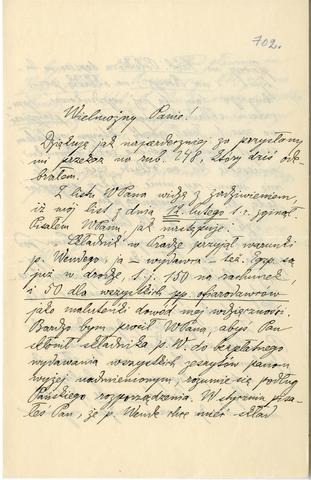 702.
Wielmożny Panie!
Dziękuję jak najserdeczniej za przysłany
mi przekaz na rub. 278, który dziś ode-
brałem.
Z listu WPana widzę z zadziwieniem,
iż mój list z dnia 12. lutego t. r. zginął.
Pisałem WPanu, jak następuje:
Składnik w Pradze przyjął warunki
p. Wendego, ja – wydawca – też. Egz. są
już w drodze, t. j. 150 na rachunek
i 50 dla wszystkich pp. ofiarodawców
jako malutenki dowód mej wdzięczności.
Bardzo bym prosił WPana, abyś Pan
skłonił składnika p. W. do bezpłatnego
wydawania wszystkich zeszytów panom
wyżej nadmienionym, rozumie się podług
Pańskiego rozporządzenia. W styczniu pisa-
łeś Pan, że p. Wende chce mieć skład